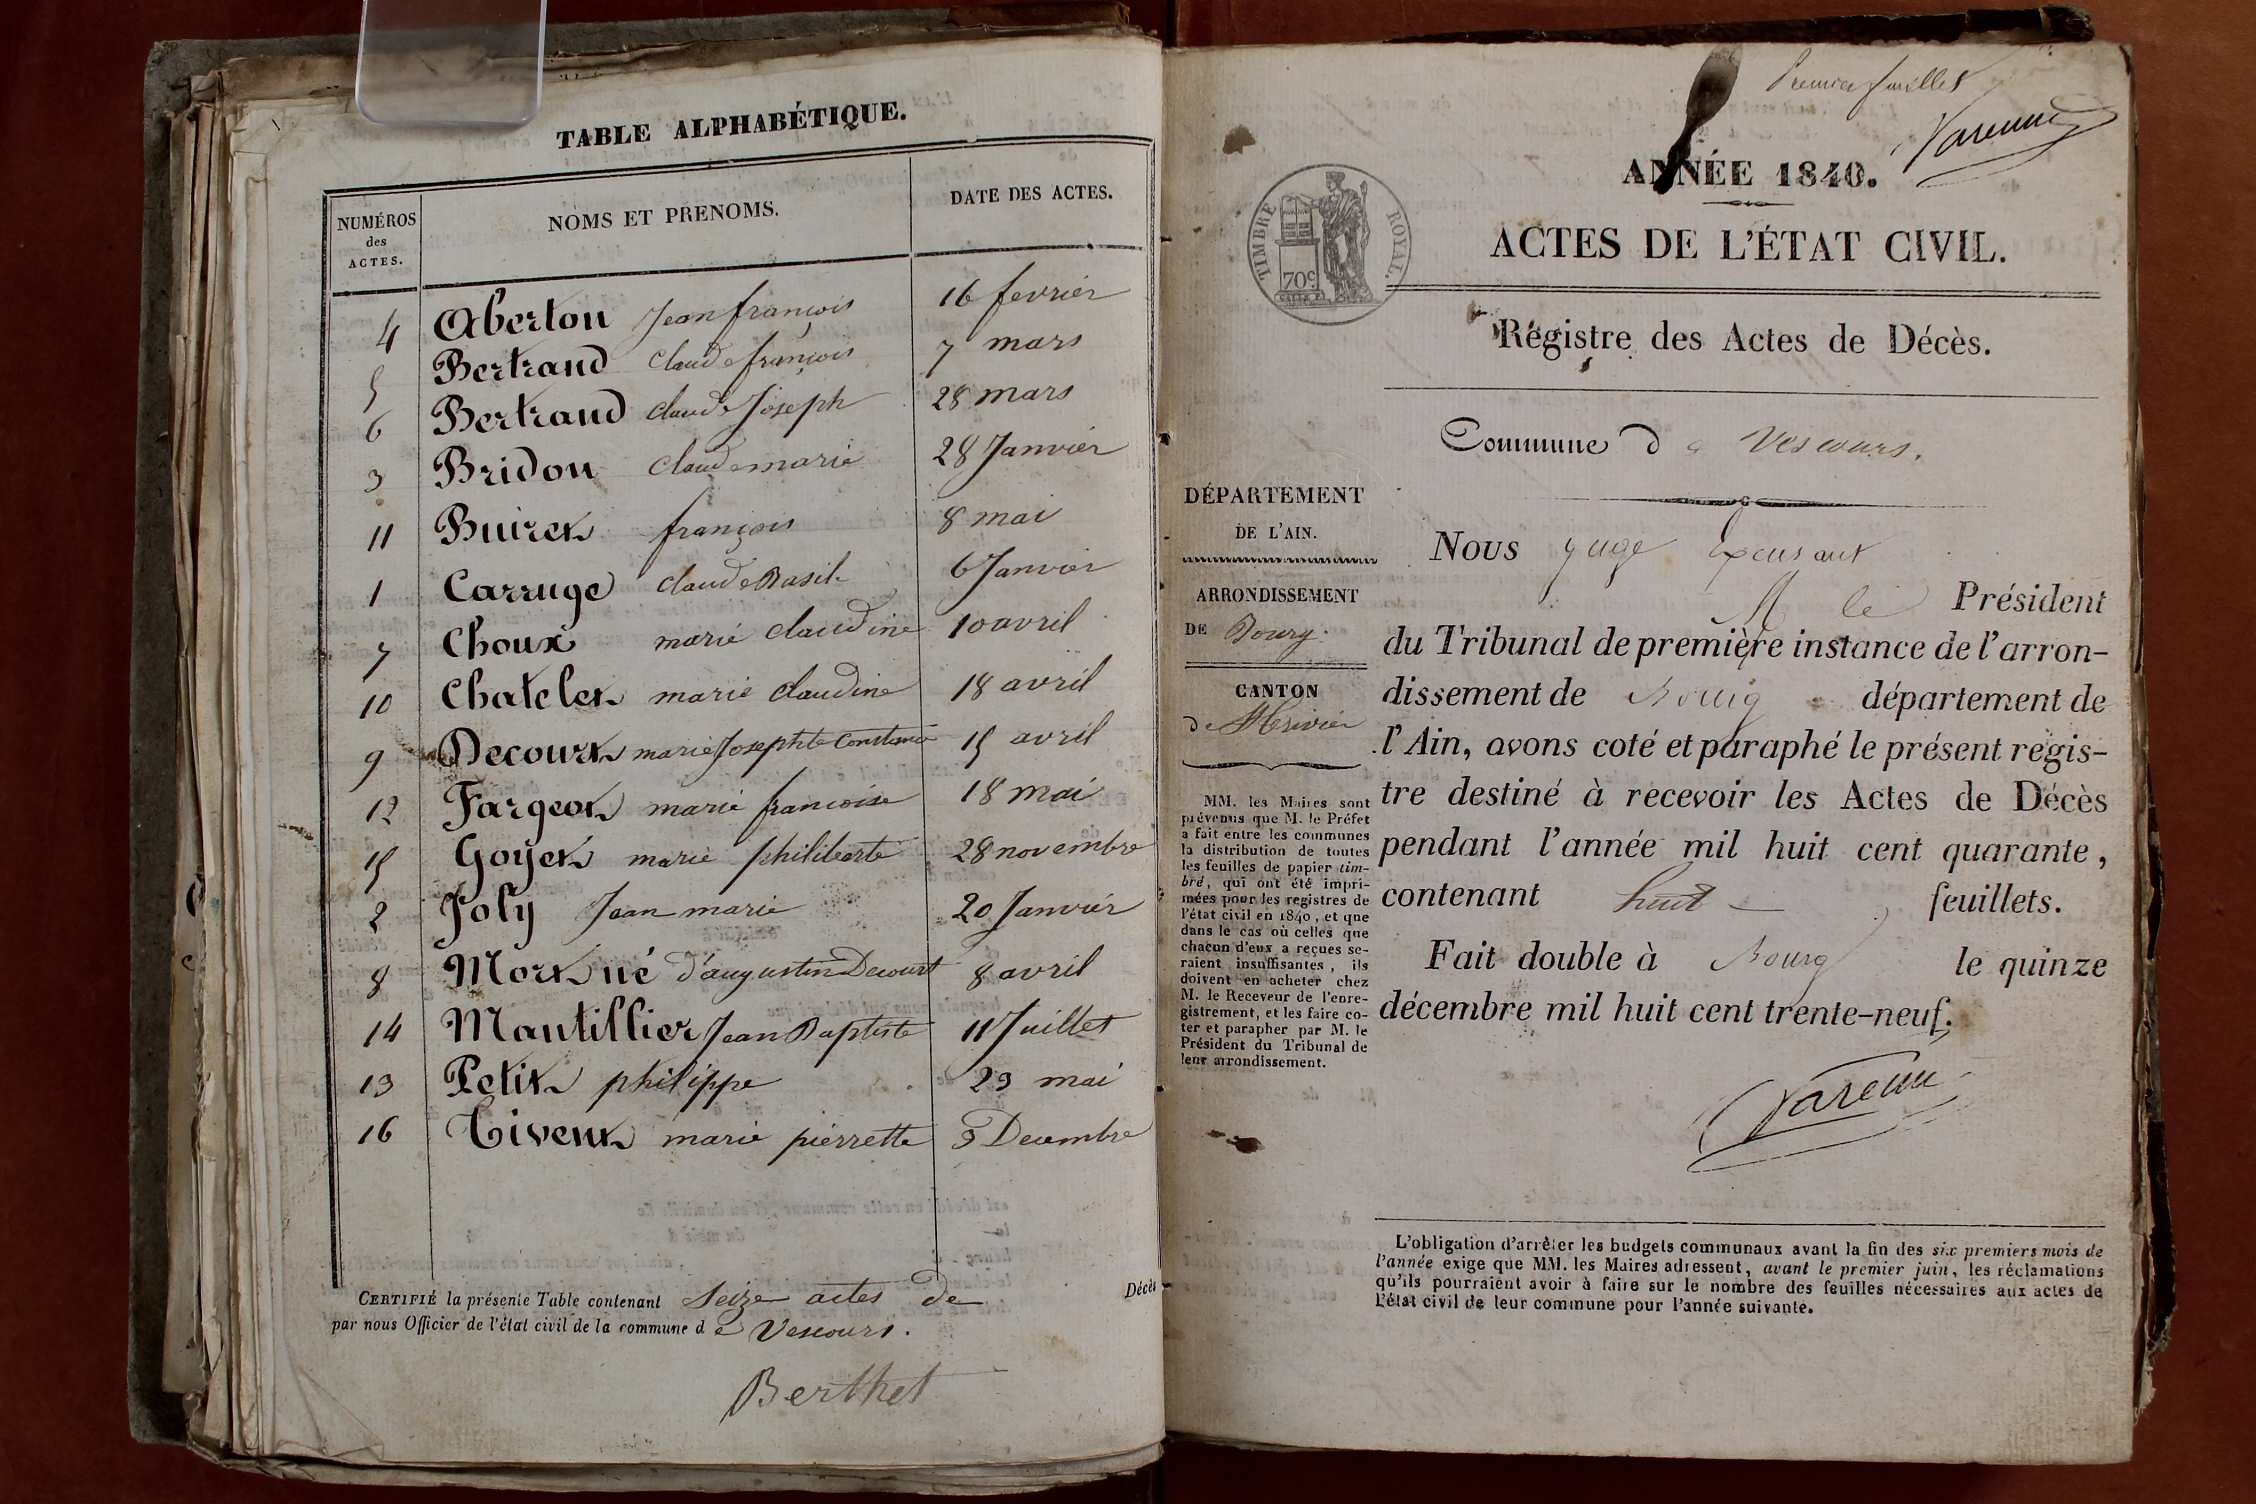 TABLE ALPHABÉTIQUE.
NUMÉROS des ACTES. NOMS ET PRENOMS. DATE DES ACTES.
4 Aberton Jean françois 16 fevrier
5 Bertrand claude françois 7 mars
6 Bertrand claude Joseph 28 mars
3 Bridon claude marie 28 Janvier
11 Buiret françois 8 mai
1 Carruge claude Basile 6 Janvier
7 Choux marie claudine 10 avril
10 Chatelet marie claudine 18 avril
9 Decourt marie Josephte Constance 15 avril
12 Fargeot marie francoise 18 mai
15 Goyet marie philiberte 28 novembre
2 Joly Jean marie 20 Janvier
8 Mort né d'augustin Decourt 8 avril
14 Mantillier Jean Baptiste 11 Juillet
13 Petit philippe 29 mai
16 Tivent marie pierrette 3 Decembre
CERTIFIÉ la présente Table contenant Seize actes de Décès
par nous Officier de l'état civil de la commune de Vescours.
Berthet
Premier feuillet
Varenne
ANNÉE 1840.
TIMBRE ROYAL.
70c
ACTES DE L'ÉTAT CIVIL.
Régistre des Actes de Décès.
Commune de Vescours.
DÉPARTEMENT
DE L'AIN.
ARRONDISSEMENT
DE Bourg.
CANTON
de
MM. les Maires sont
prévenus que M. le Préfet
a fait entre les communes
la distribution de toutes
les feuilles de papier tim-
bré, qui ont été impri-
mées pour les registres de
l'état civil en 1840, et que
dans le cas où celles que
chacun d'eux a reçues se-
raient insuffisantes, ils
doivent en acheter chez
M. le Receveur de l'enre-
gistrement, et les faire co-
ter et parapher par M. le
Président du Tribunal de
leur arrondissement.
Nous juge
M le Président
du Tribunal de première instance de l'arron-
dissement de Bourg département de
l'Ain, avons coté et paraphé le présent régis-
tre destiné à recevoir les Actes de Décès
pendant l'année mil huit cent quarante,
contenant huit feuillets.
Fait double à Bourg le quinze
décembre mil huit cent trente-neuf.
Varenne
L'obligation d'arrêter les budgets communaux avant la fin des six premiers mois de
l'année exige que MM. les Maires adressent, avant le premier juin, les réclamations
qu'ils pourraient avoir à faire sur le nombre des feuilles nécessaires aux actes de
l'état civil de leur commune pour l'année suivante.